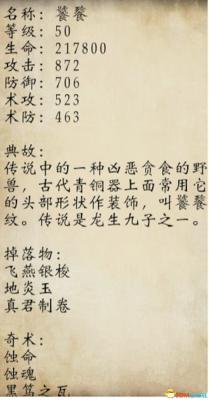 名称：饕餮
等级：50
生命：217800
攻击：872
防御：706
术攻：523
术防：463
典故：
传说中的一种凶恶贪食的野
兽，古代青铜器上面常用它
的头部形状作装饰，叫饕餮
纹。传说是龙生九子之一。
掉落物：
飞燕银梭
地炎玉
真君制卷
奇术：
蚀命
蚀魂
黑笃之瓦